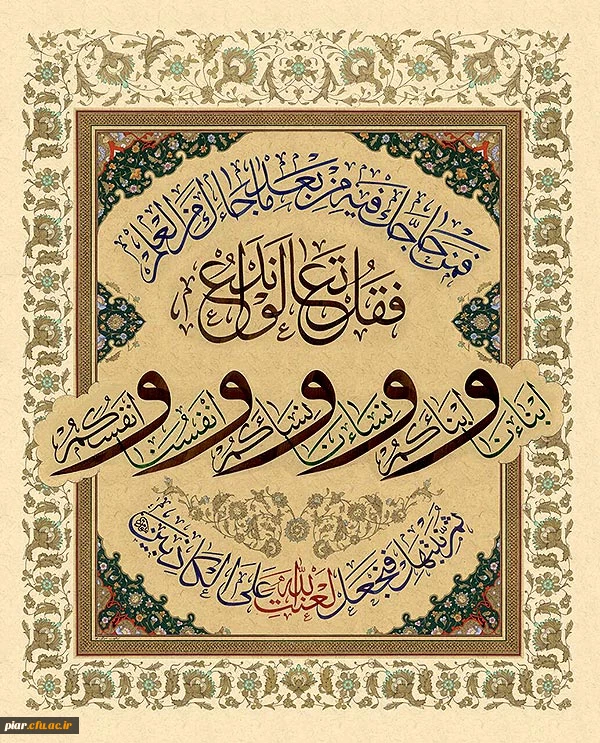 فمن حاجّك فيه من بعد ما جاءك من العلم
فقل تعالوا ندع
ابناءنا و ابناءكم و نساءنا و نساءكم و انفسنا و انفسكم
ثم نبتهل فنجعل لعنت الله على الكاذبين
piar.cfu.ac.ir